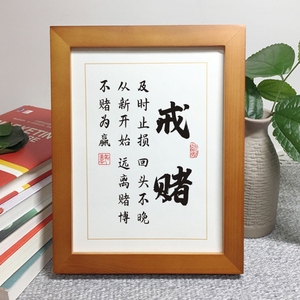 戒赌
及时止损 回头不晚
从新开始 远离赌博
不赌为赢